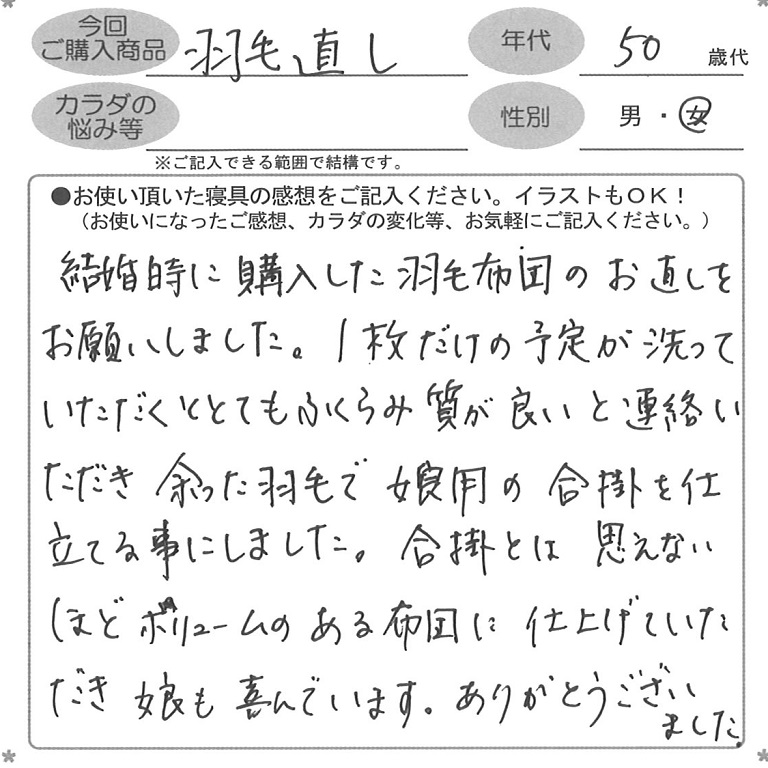 今回
ご購入商品
羽毛直し
年代
50
歳代
カラダの
悩み等
性別
男・女
※ご記入できる範囲で結構です。
●お使い頂いた寝具の感想をご記入ください。イラストもOK！
（お使いになったご感想、カラダの変化等、お気軽にご記入ください。）
結婚時に購入した羽毛布団のお直しを
お願いしました。1枚だけの予定が洗って
いただくととてもふくらみ質が良いと連絡い
ただき余った羽毛で娘用の合掛を仕
立てる事にしました。合掛とは思えない
ほどボリュームのある布団に仕上げていた
だき娘も喜んでいます。ありがとうござい
ました。